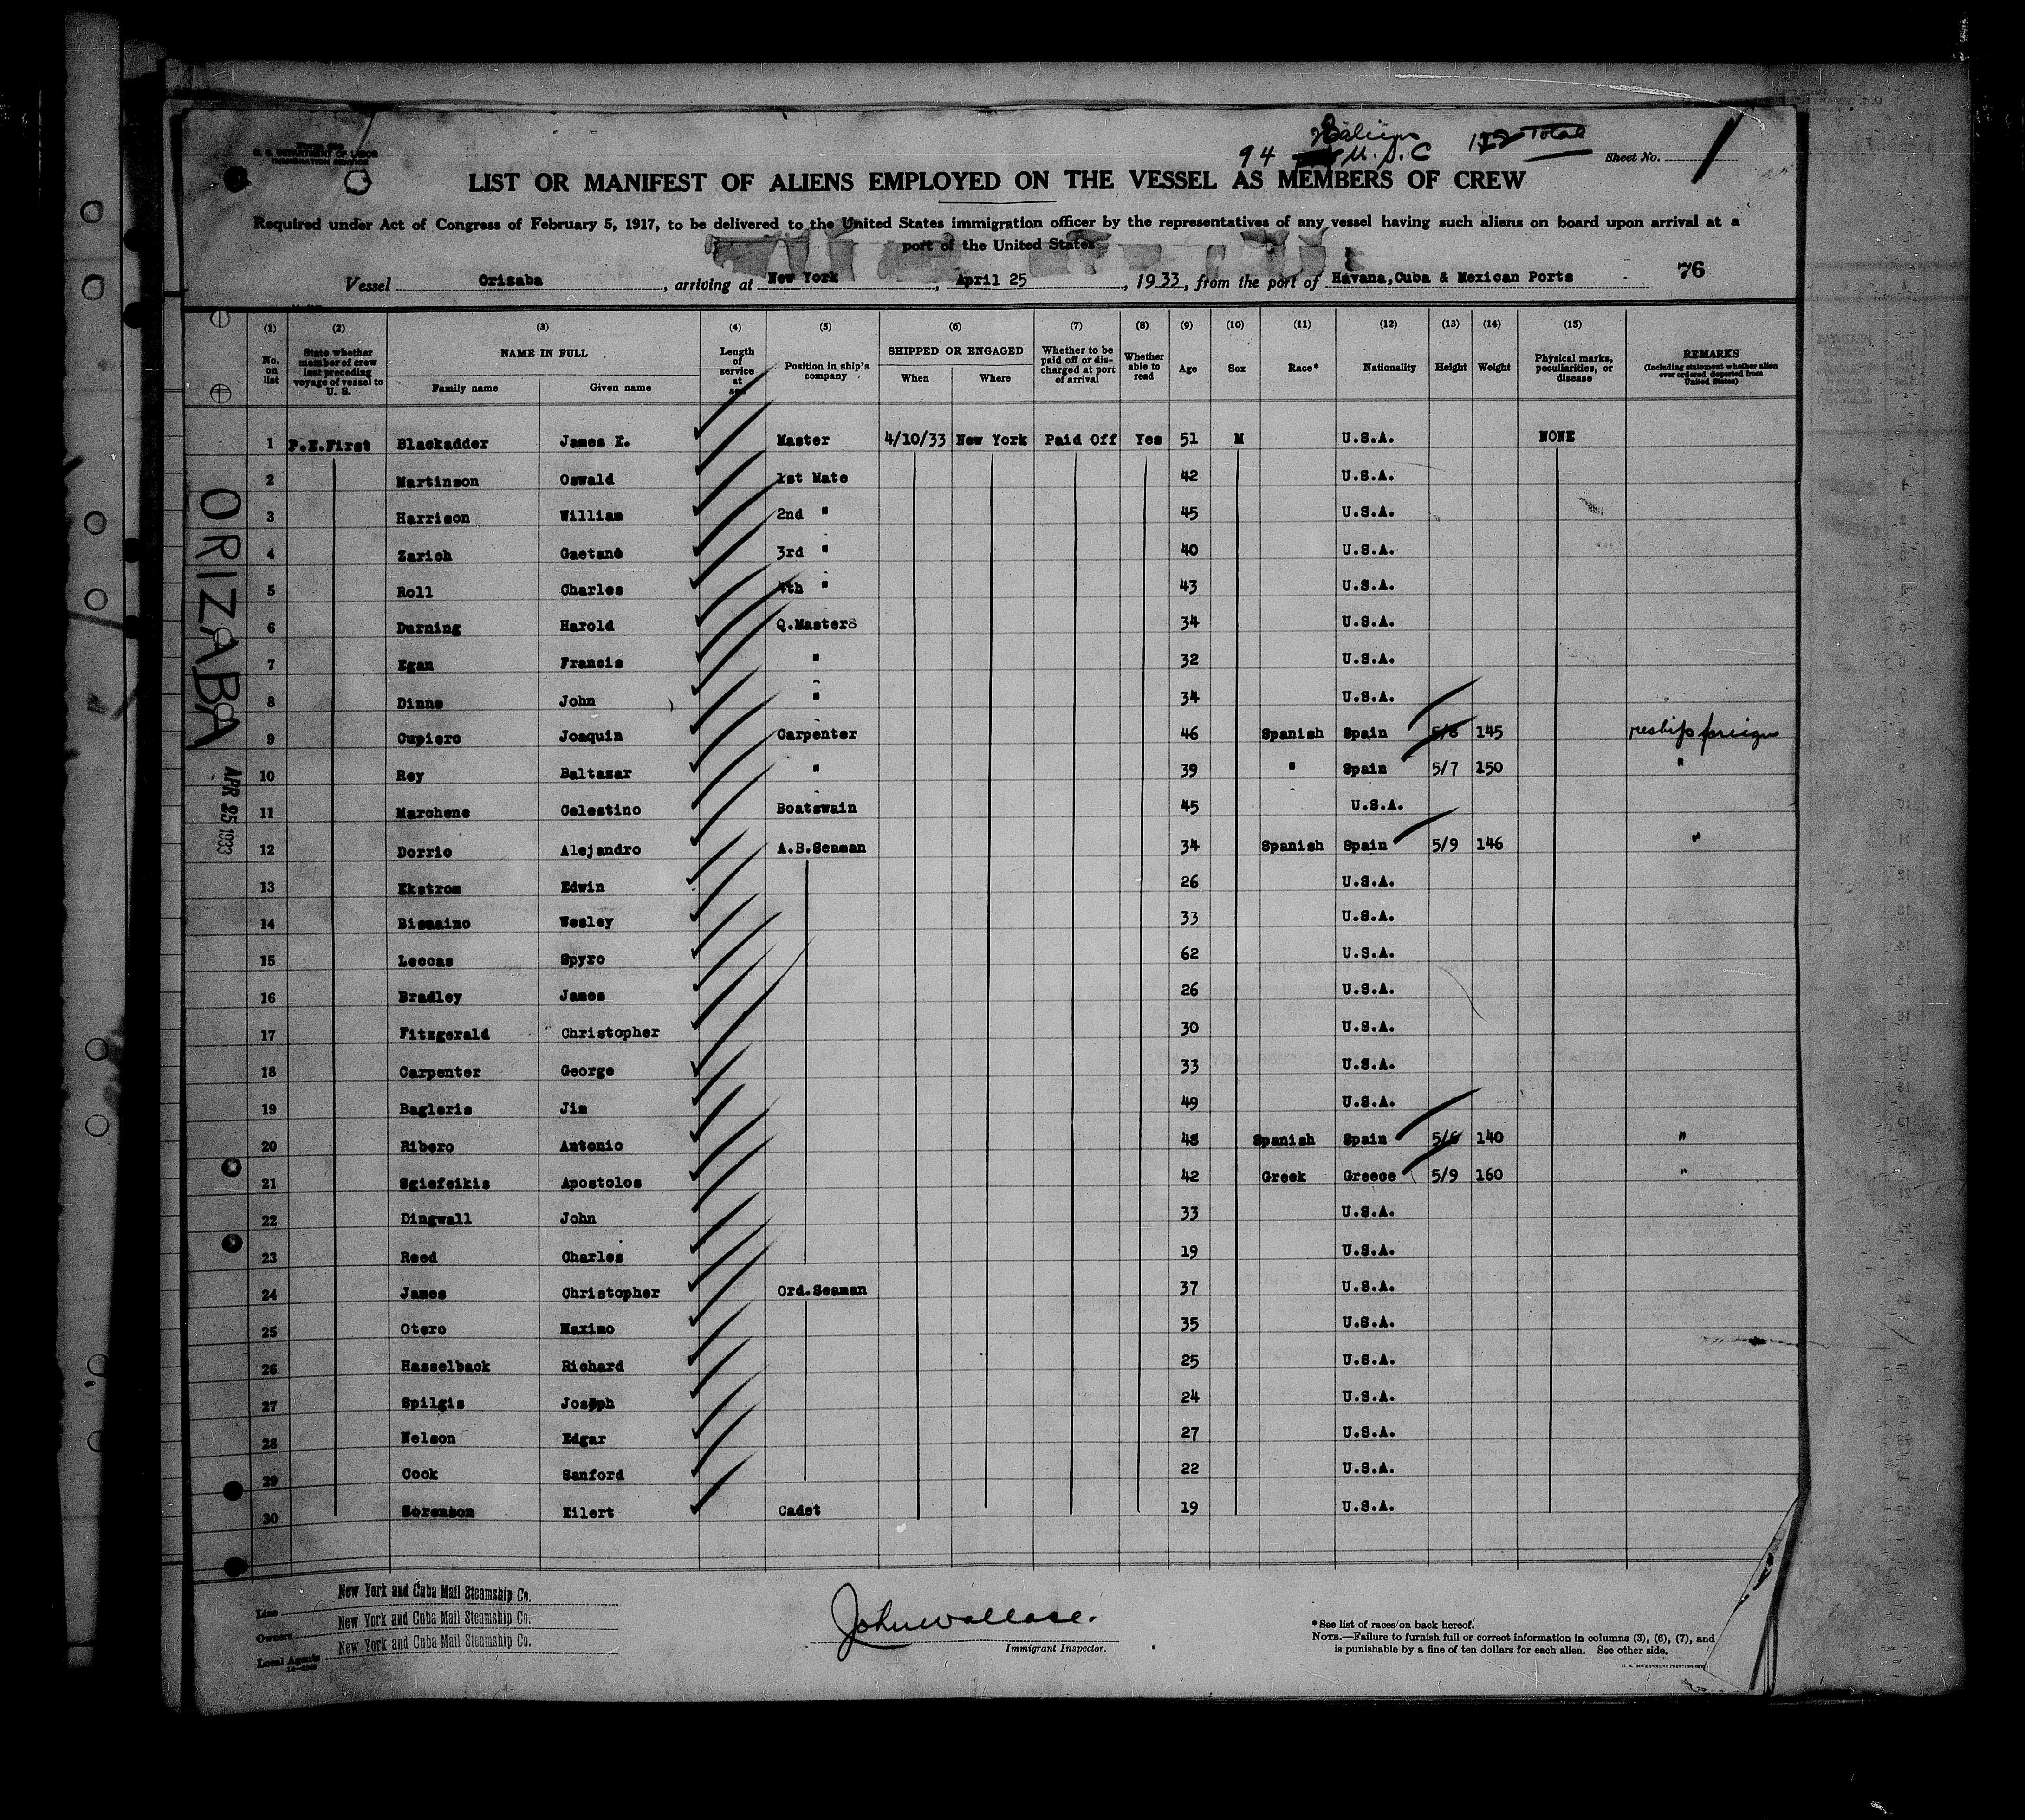 Form 689
U. S. DEPARTMENT OF LABOR
IMMIGRATION SERVICE
94 U.S.C Total
Sheet No. 1
LIST OR MANIFEST OF ALIENS EMPLOYED ON THE VESSEL AS MEMBERS OF CREW
Required under Act of Congress of February 5, 1917, to be delivered to the United States immigration officer by the representatives of any vessel having such aliens on board upon arrival at a
port of the United States
Vessel Orizaba, arriving at New York, April 25, 1933, from the port of Havana,Cuba & Mexican Ports 76
(1) (2) (3) (4) (5) (6) (7) (8) (9) (10) (11) (12) (13) (14) (15)
No. on list State whether member of crew last preceding voyage of vessel to U. S. NAME IN FULL Family name Given name Length of service at sea Position in ship's company SHIPPED OR ENGAGED When Where Whether to be paid off or discharged at port of arrival Whether able to read Age Sex Race* Nationality Height Weight Physical marks, peculiarities, or disease REMARKS (Including statement whether alien ever ordered deported from United States)
1 P.E.First Blackadder James E. Master 4/10/33 New York Paid Off Yes 51 M U.S.A. NONE
2 Martinson Oswald 1st Mate 42 U.S.A.
3 Harrison William 2nd " 45 U.S.A.
4 Zarich Gaetano 3rd " 40 U.S.A.
5 Roll Charles 4th " 43 U.S.A.
6 Durning Harold Q.Masters 34 U.S.A.
7 Egan Francis " 32 U.S.A.
8 Dinne John " 34 U.S.A.
9 Cupiero Joaquin Carpenter 46 Spanish Spain 5/8 145 reship foreign
10 Rey Baltazar " 39 " Spain 5/7 150 "
11 Marchene Celestino Boatswain 45 U.S.A.
12 Dorrio Alejandro A.B.Seaman 34 Spanish Spain 5/9 146 "
13 Ekstrom Edwin 26 U.S.A.
14 Bismaino Wesley 33 U.S.A.
15 Leccas Spyro 62 U.S.A.
16 Bradley James 26 U.S.A.
17 Fitzgerald Christopher 30 U.S.A.
18 Carpenter George 33 U.S.A.
19 Bagleris Jim 49 U.S.A.
20 Ribero Antonio 48 Spanish Spain 5/6 140 "
21 Sgiefeikis Apostolos 42 Greek Greece 5/9 160 "
22 Dingwall John 33 U.S.A.
23 Reed Charles 19 U.S.A.
24 James Christopher Ord.Seaman 37 U.S.A.
25 Otero Maximo 35 U.S.A.
26 Hasselback Richard 25 U.S.A.
27 Spilgis Joseph 24 U.S.A.
28 Nelson Edgar 27 U.S.A.
29 Cook Sanford 22 U.S.A.
30 Sorenson Eilert Cadet 19 U.S.A.
ORIZABA
APR 25 1933
Line New York and Cuba Mail Steamship Co.
Owners New York and Cuba Mail Steamship Co.
Local Agents New York and Cuba Mail Steamship Co.
John Wallace.
Immigrant Inspector.
*See list of races on back hereof.
NOTE.—Failure to furnish full or correct information in columns (3), (6), (7), and
is punishable by a fine of ten dollars for each alien. See other side.
U. S. GOVERNMENT PRINTING